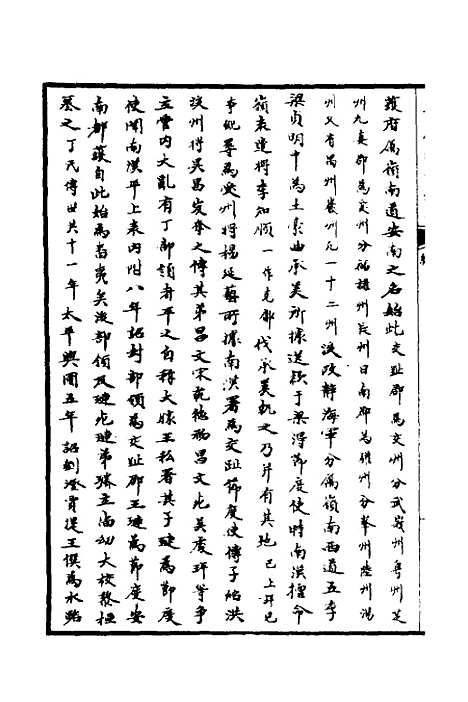 護府屬嶺南道安南之名始此交趾郡為交州分武峩州粤州芝
州九真郡為愛州分福祿州長州日南郡為驩州分峯州陸州湯
州又有籠州巖州凡一十二州後改靜海軍分屬嶺南西道五季
梁貞明中為土豪曲承美所據送欵于梁得節度使時南漢擅命
嶺表遣將李知順一作克郡伐承美執之乃并有其地已上并已
事紀尋為愛州將楊延藝所據南漢署為交趾節度使傳子紹洪
後州將吳昌岌奪之傳其弟昌文宋乾德初昌文死吳處玶等爭
立管内大亂有丁部領者平之自稱大勝王私署其子璉為節度
使開南漢平上表内附八年詔封部領為交趾郡王璉為節度安
南都護自此始為南夷矣後部領及璉死璉弟璿立尚幼大校黎桓
篡之丁氏傳世共十一年太平興國五年詔劉澄賈湜王僎為水路